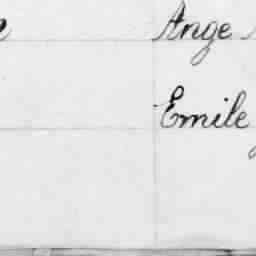 Ange
Emile